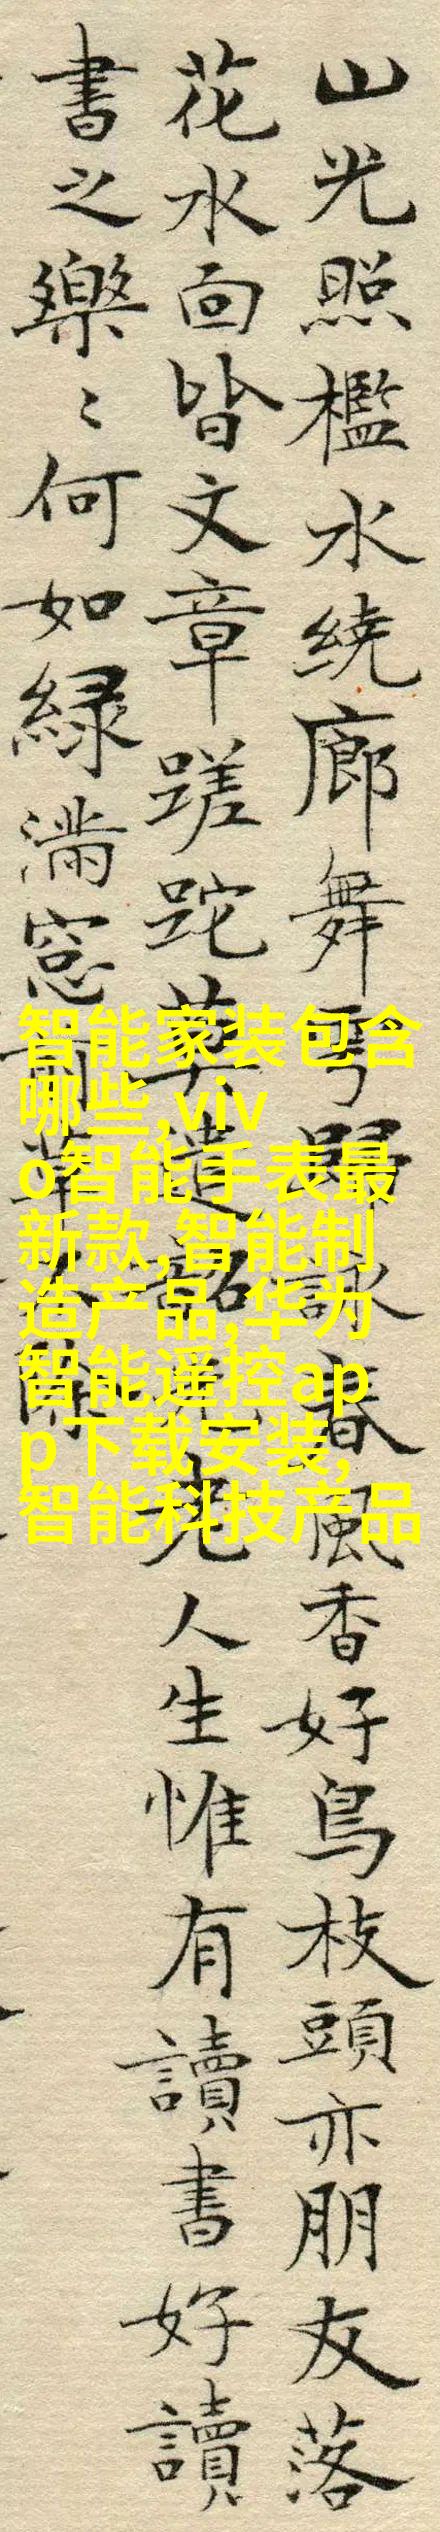 山光照檻水繞廊舞雩歸詠春風香好鳥枝頭亦朋友落
花水面皆文章蹉跎莫遣韶光老人生惟有讀書好讀
書之樂〻何如綠滿窓前草不除
智能家装包含
哪些,viv
o智能手表最
新款,智能制
造产品,华为
智能遥控ap
p下载安装,
智能科技产品